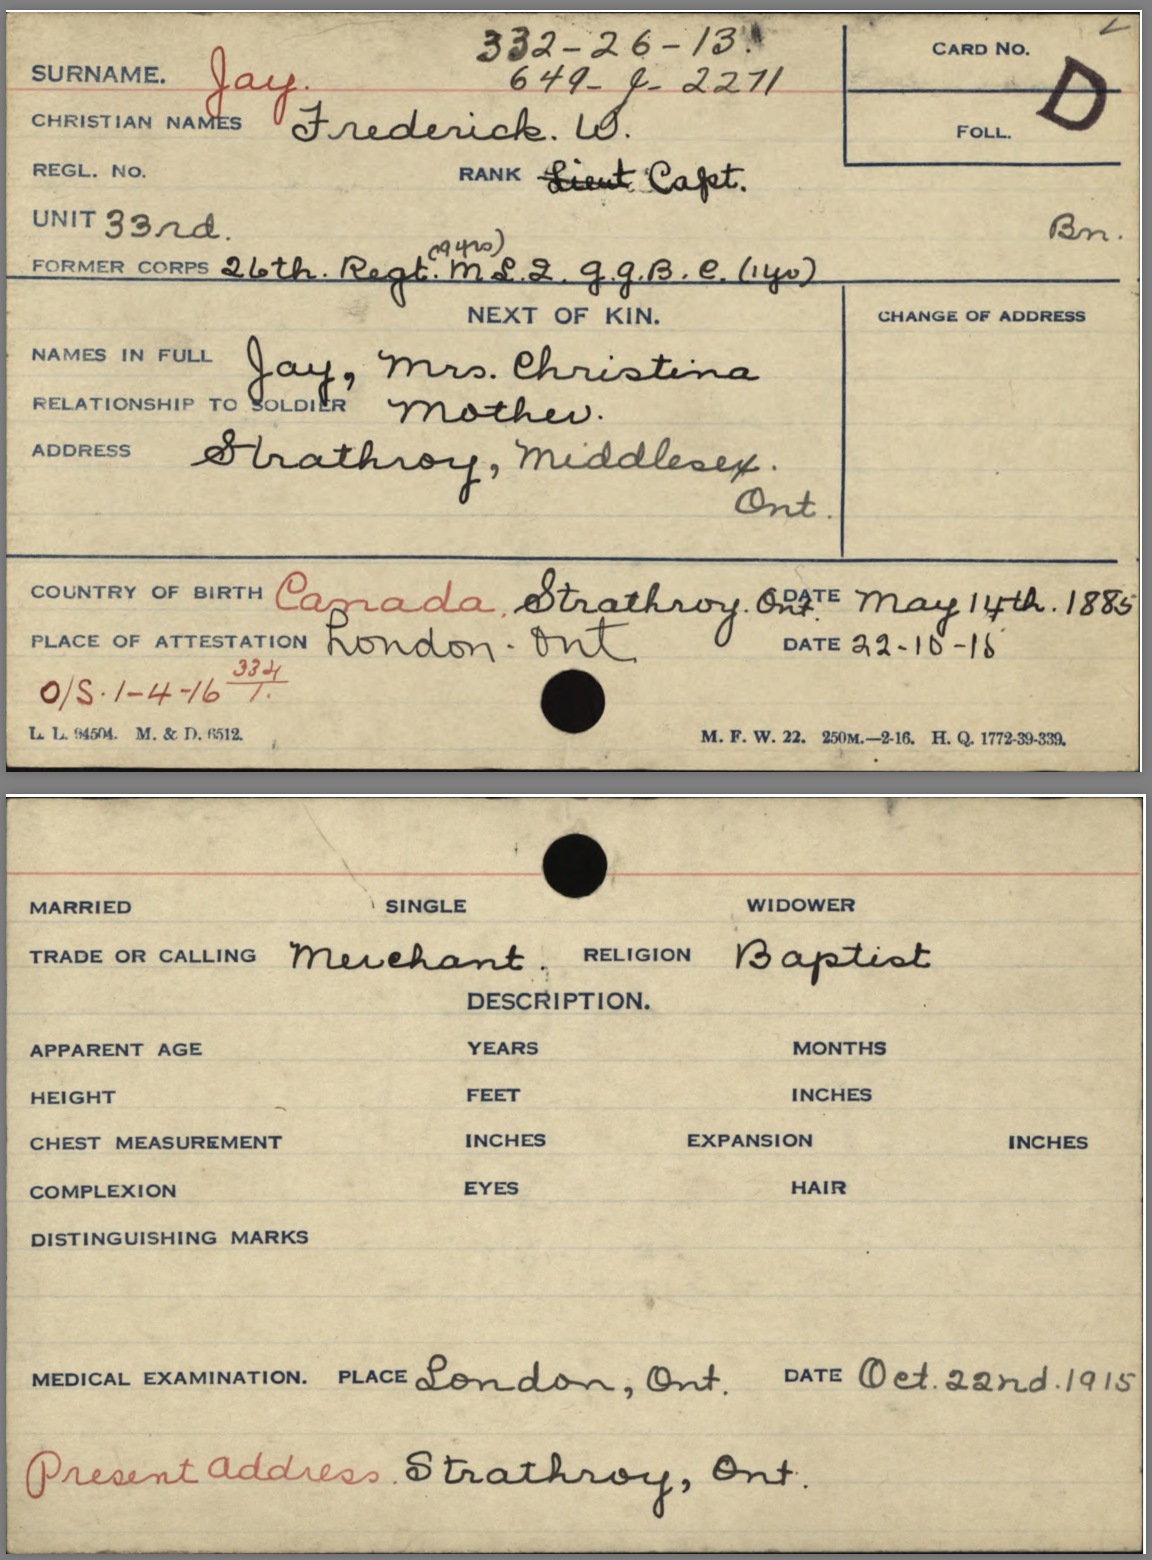 332-26-13.
649-J-2271
CARD NO.
D
SURNAME. Jay.
CHRISTIAN NAMES Frederick. W.
FOLL.
REGL. NO. RANK Lieut Capt.
UNIT 33rd. Bn.
(9 yrs)
FORMER CORPS 26th. Regt. M L.I. G.G.B.G. (1 yr)
NEXT OF KIN.
CHANGE OF ADDRESS
NAMES IN FULL Jay, Mrs. Christina
RELATIONSHIP TO SOLDIER Mother.
ADDRESS Strathroy, Middlesex.
Ont.
COUNTRY OF BIRTH Canada, Strathroy. Ont. DATE May 14th. 1885
PLACE OF ATTESTATION London. Ont DATE 22-10-15
O/S. 1-4-16 334/1.
L. L. 94504. M. & D. 6512. M. F. W. 22. 250M.—2-16. H. Q. 1772-39-339.
MARRIED SINGLE WIDOWER
TRADE OR CALLING Merchant. RELIGION Baptist
DESCRIPTION.
APPARENT AGE YEARS MONTHS
HEIGHT FEET INCHES
CHEST MEASUREMENT INCHES EXPANSION INCHES
COMPLEXION EYES HAIR
DISTINGUISHING MARKS
MEDICAL EXAMINATION. PLACE London, Ont. DATE Oct. 22nd. 1915
Present address. Strathroy, Ont.